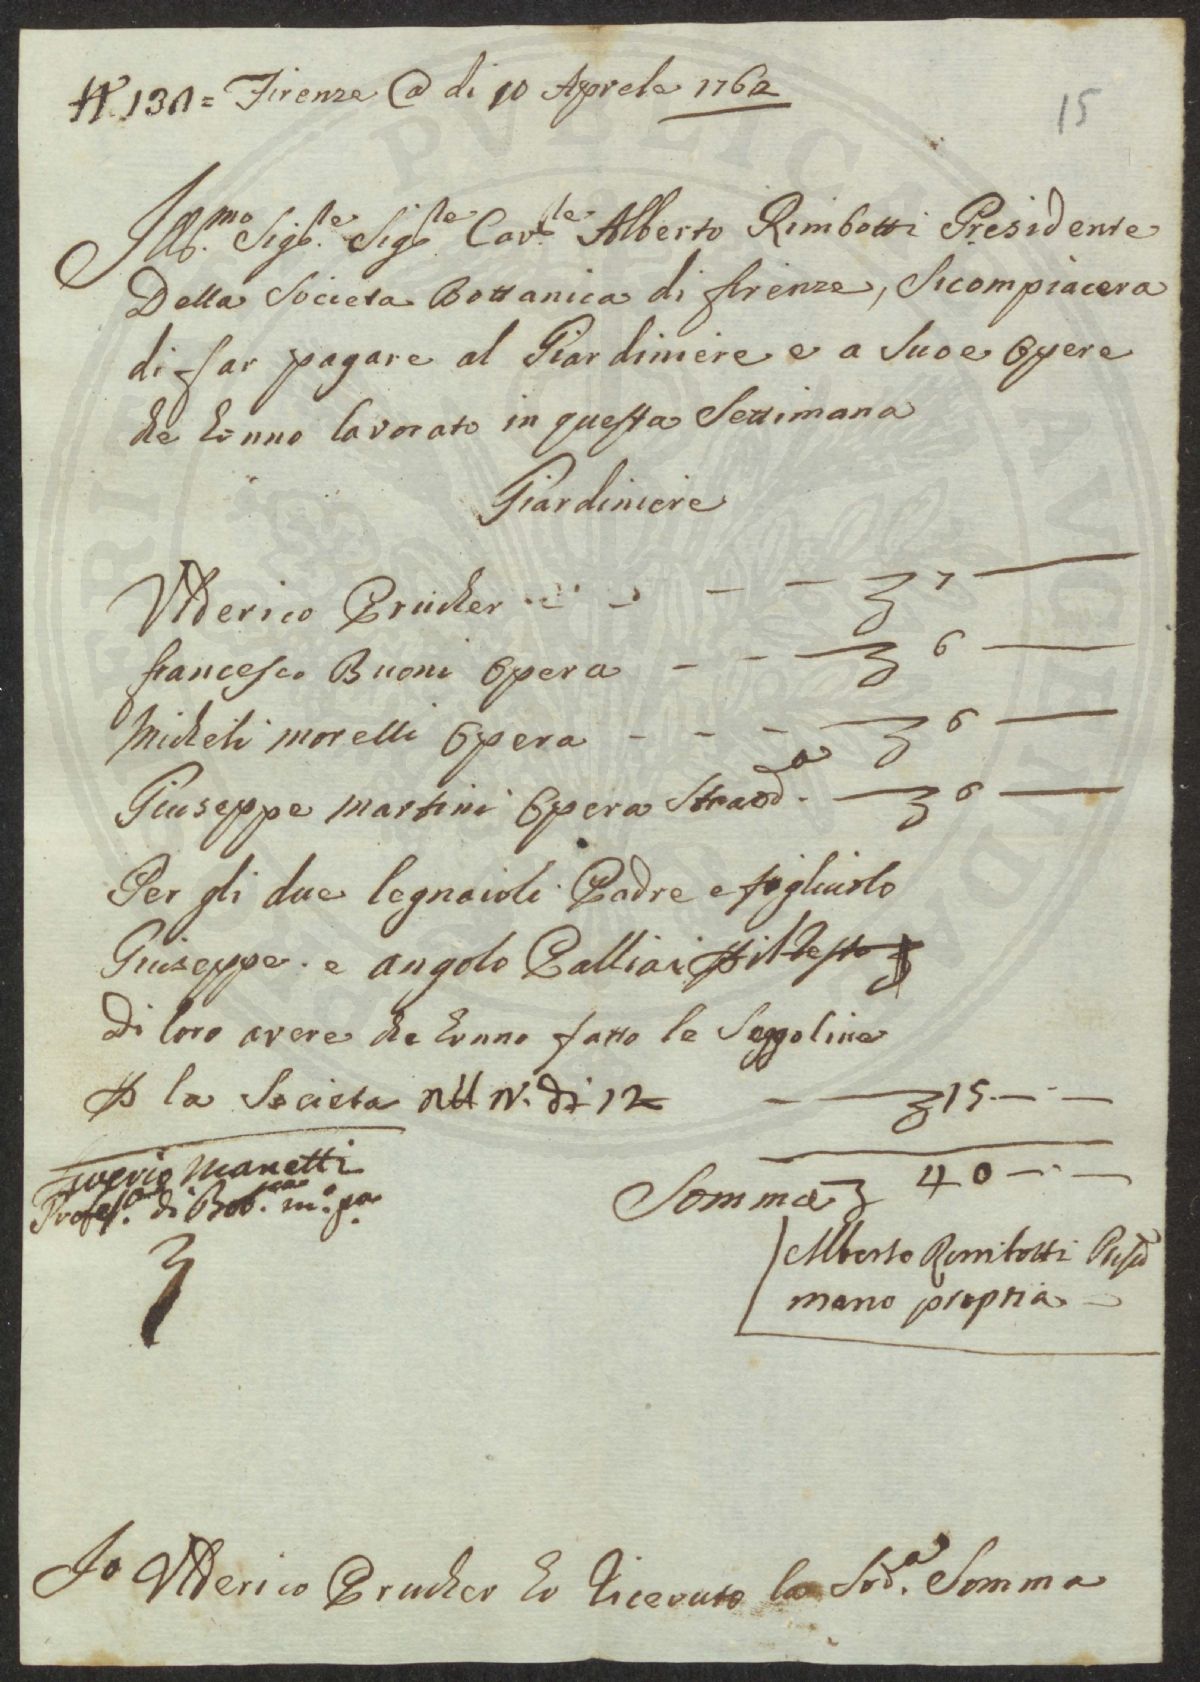 N. 130 = Firenze @ di 10 Aprele 1762
15
Ill.mo Sig.re Sig.re Cav.re Alberto Rimbotti Presidente
Della Societa Bottanica di firenze, Sicompiacera
di far pagare al Giardiniere e a Suoe Opere
che Ỏnno lavorato in questa Settimana
Giardiniere
Vlderico Prucker - - - 7 —
francesco Buoni Opera - - — 6 —
Micheli morelli Opera - - - — 6 —
Giuseppe martini Opera Straod.a — 6 —
Per gli due legnaioli Padre e figliuolo
Giuseppe e angolo Palliai
Di loro avere che Ỏnno fatto le Seggoline
P la Societa N. di 12 - — 15 - -
Somma 40 - -
Saverio Manetti
Profess.e di Bot.ca m.o p.a
Alberto Rimbotti Presid
mano propria
Io Vlderico Prucker Ỏ Riceuto la Sod.a Somma